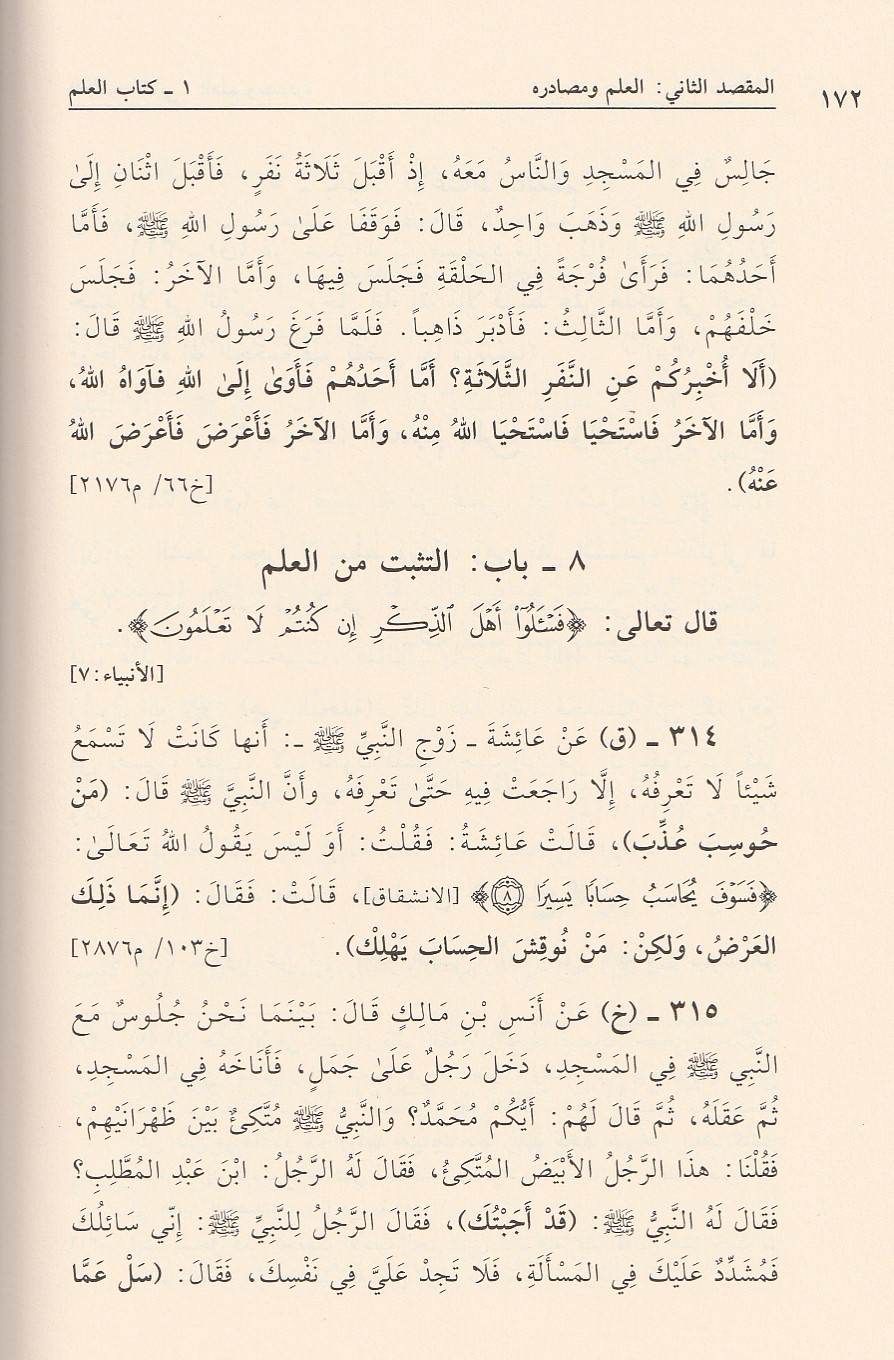 ١٧٢ المقصد الثاني: العلم ومصادره ١ ـ كتاب العلم
جَالِسٌ فِي المَسْجِدِ وَالنَّاسُ مَعَهُ، إِذْ أَقْبَلَ ثَلَاثَةُ نَفَرٍ، فَأَقْبَلَ اثْنَانِ إِلَىٰ
رَسُولِ اللهِ ﷺ وَذَهَبَ وَاحِدٌ، قَالَ: فَوَقَفَا عَلَىٰ رَسُولِ اللهِ ﷺ، فَأَمَّا
أَحَدُهُمَا: فَرَأَىٰ فُرْجَةً فِي الحَلْقَةِ فَجَلَسَ فِيهَا، وَأَمَّا الآخَرُ: فَجَلَسَ
خَلْفَهُمْ، وَأَمَّا الثَّالِثُ: فَأَدْبَرَ ذَاهِباً. فَلَمَّا فَرَغَ رَسُولُ اللهِ ﷺ قَالَ:
(أَلَا أُخْبِرُكُمْ عَنِ النَّفَرِ الثَّلَاثَةِ؟ أَمَّا أَحَدُهُمْ فَأَوَىٰ إِلَىٰ اللهِ فآوَاهُ اللهُ،
وَأَمَّا الآخَرُ فَاسْتَحْيَا فَاسْتَحْيَا اللهُ مِنْهُ، وَأَمَّا الآخَرُ فَأَعْرَضَ فَأَعْرَضَ اللهُ
عَنْهُ). [خ٦٦/ م٢١٧٦]
٨ ـ باب: التثبت من العلم
قال تعالى: ﴿فَسْـَٔلُوٓا۟ أَهْلَ ٱلذِّكْرِ إِن كُنتُمْ لَا تَعْلَمُونَ﴾.
[الأنبياء:٧]
٣١٤ ـ (ق) عَنْ عَائِشَةَ ـ زَوْجِ النَّبِيِّ ﷺ ـ: أَنها كَانَتْ لَا تَسْمَعُ
شَيْئاً لَا تَعْرِفُهُ، إِلَّا رَاجَعَتْ فِيهِ حَتَّىٰ تَعْرِفَهُ، وأَنَّ النَّبِيَّ ﷺ قَالَ: (مَنْ
حُوسِبَ عُذِّبَ)، قَالَتْ عَائِشَةُ: فَقُلْتُ: أَوَ لَيْسَ يَقُولُ اللهُ تَعَالَىٰ:
﴿فَسَوْفَ يُحَاسَبُ حِسَابًا يَسِيرًا ٨﴾ [الانشقاق]، قَالَتْ: فَقَالَ: (إِنَّمَا ذَلِكَ
العَرْضُ، وَلَكِنْ: مَنْ نُوقِشَ الحِسَابَ يَهْلِكْ). [خ١٠٣/ م٢٨٧٦]
٣١٥ ـ (خ) عَنْ أَنَسِ بْنِ مَالِكٍ قَالَ: بَيْنَمَا نَحْنُ جُلُوسٌ مَعَ
النَّبِي ﷺ فِي المَسْجِدِ، دَخَلَ رَجُلٌ عَلَىٰ جَمَلٍ، فَأَنَاخَهُ فِي المَسْجِدِ،
ثُمَّ عَقَلَهُ، ثُمَّ قَالَ لَهُمْ: أَيُّكُمْ مُحَمَّدٌ؟ وَالنَّبِيُّ ﷺ مُتَّكِئٌ بَيْنَ ظَهْرَانَيْهِمْ،
فَقُلْنَا: هذَا الرَّجُلُ الأَبْيَضُ المُتَّكِئُ، فَقَالَ لَهُ الرَّجُلُ: ابْنَ عَبْدِ المُطَّلِبِ؟
فَقَالَ لَهُ النَّبِيُّ ﷺ: (قَدْ أَجَبْتُكَ)، فَقَالَ الرَّجُلُ لِلنَّبِيِّ ﷺ: إِنّي سَائِلُكَ
فَمُشَدِّدٌ عَلَيْكَ فِي المَسْأَلَةِ، فَلَا تَجِدْ عَلَيَّ فِي نَفْسِكَ، فَقَالَ: (سَلْ عَمَّا